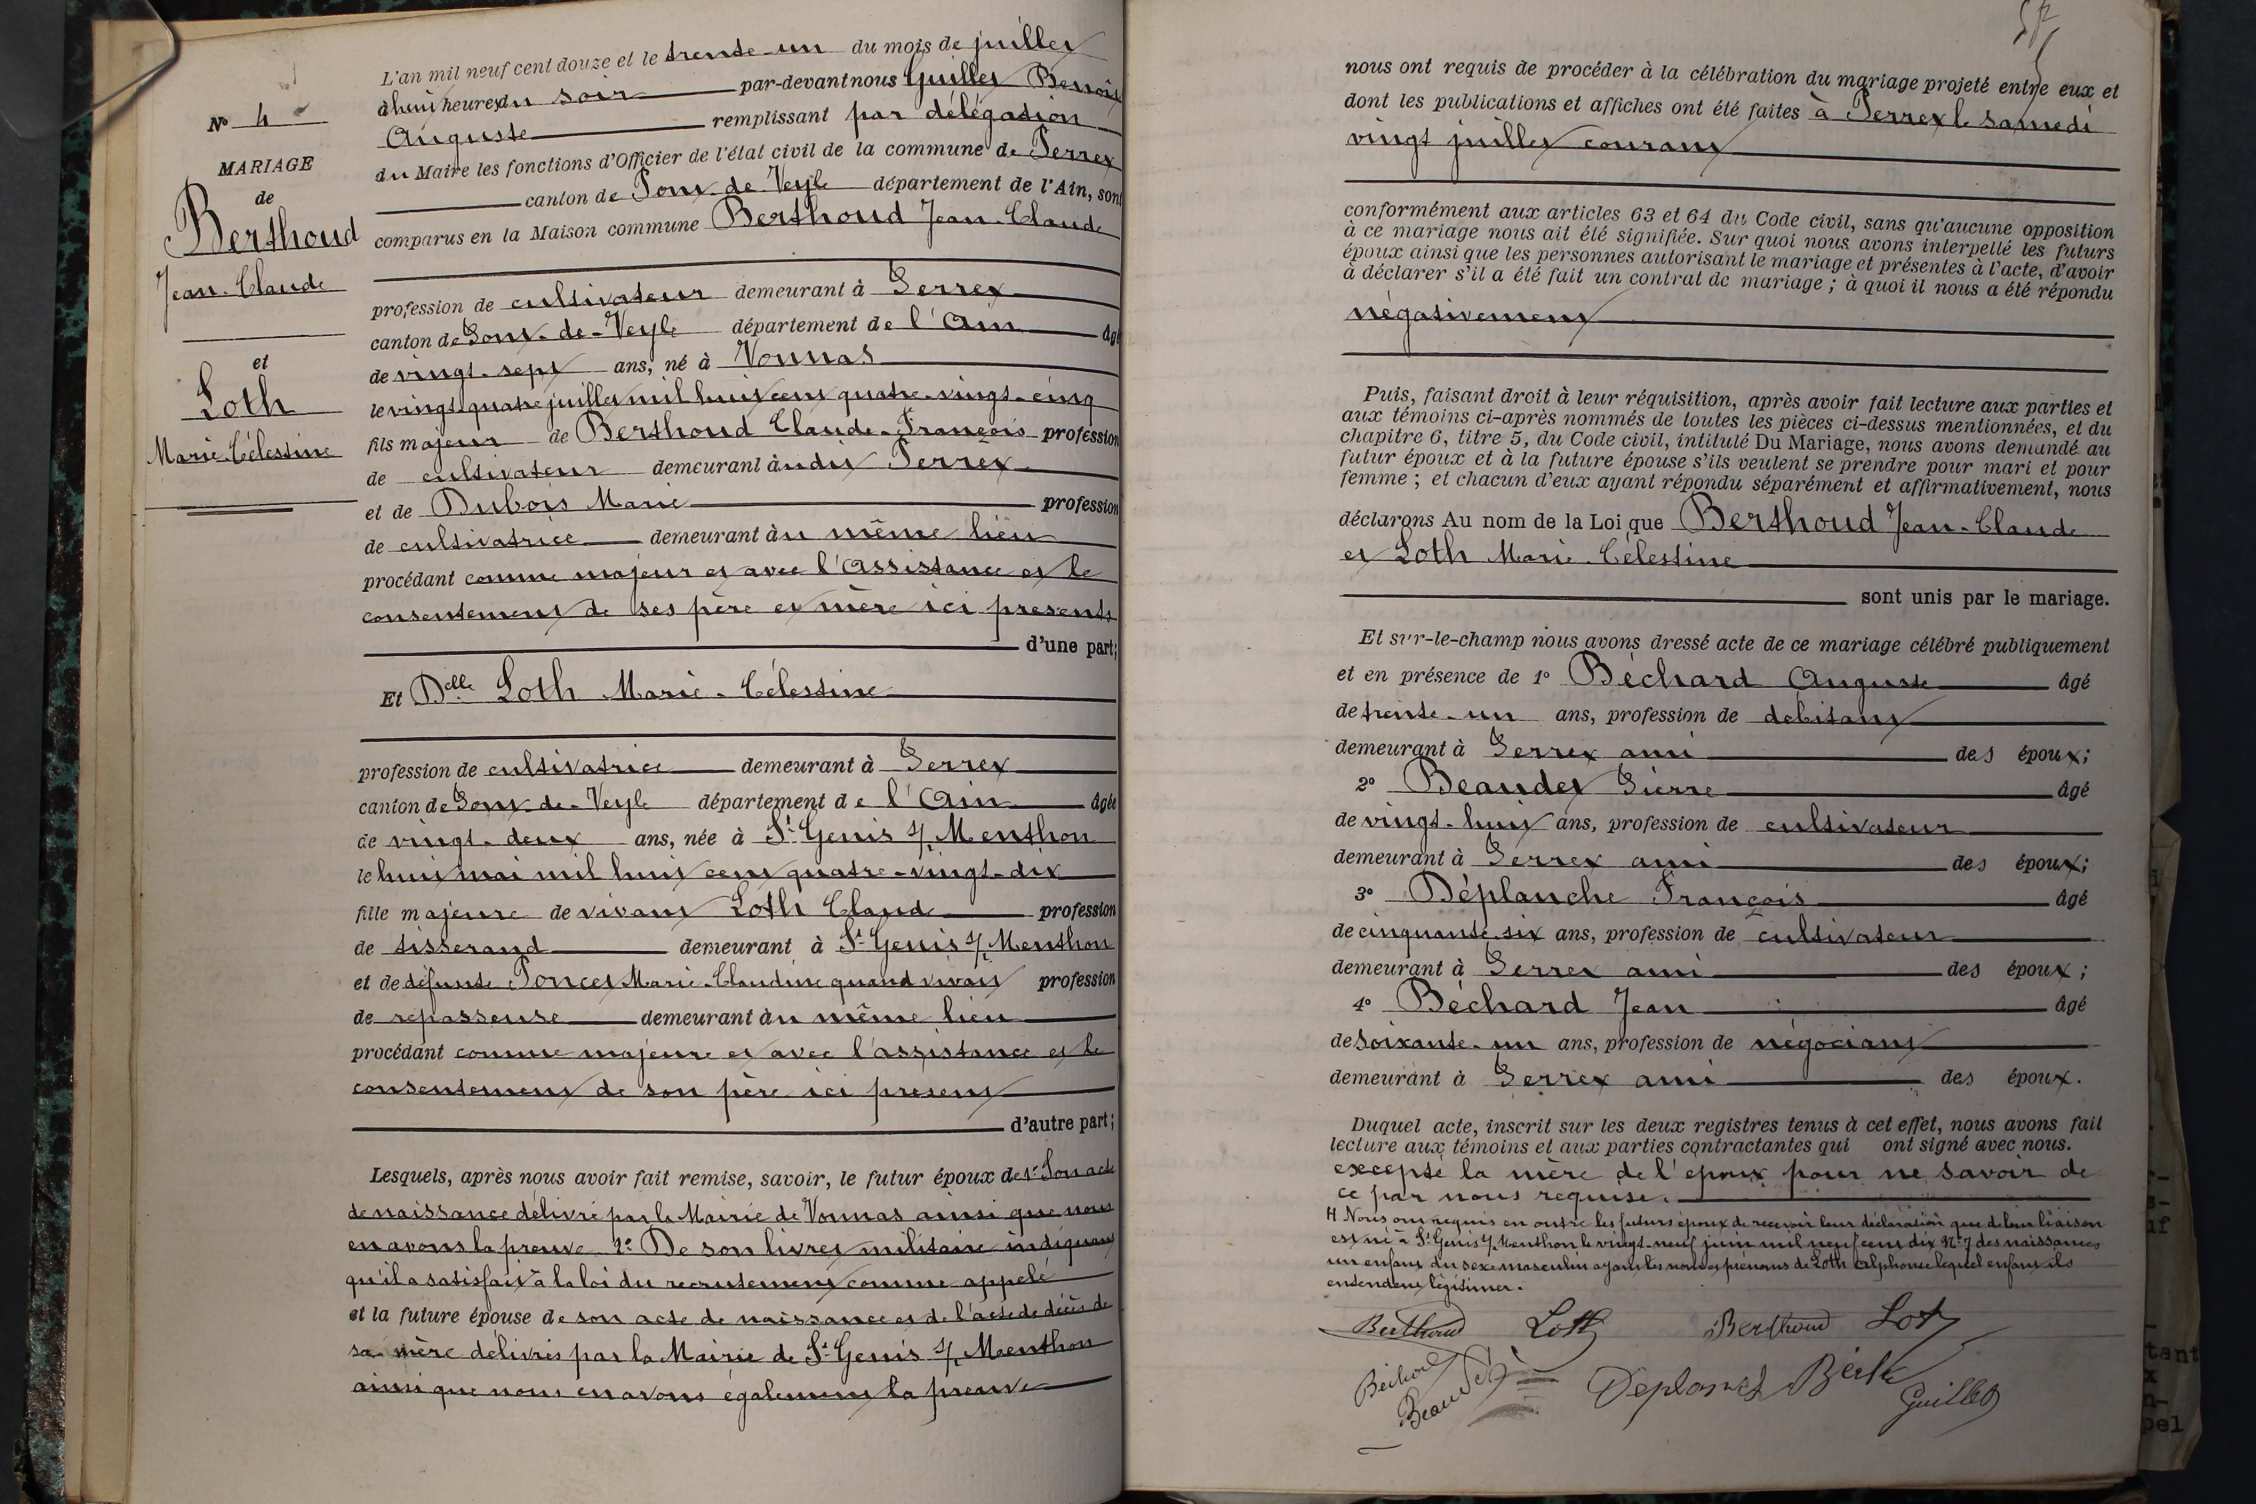 L'an mil neuf cent douze et le trente-un du mois de juillet
à huit heures du soir par-devant nous Guillet Benoît
Auguste remplissant par délégation
du Maire les fonctions d'Officier de l'état civil de la commune de Perrex
canton de Pont-de-Veyle département de l'Ain, sont
comparus en la Maison commune Berthoud Jean-Claude
profession de cultivateur demeurant à Perrex
canton de Pont-de-Veyle département de l'Ain âgé
de vingt-sept ans, né à Vonnas
le vingt-quatre juillet mil huit cent quatre-vingt-cinq
fils majeur de Berthoud Claude-François profession
de cultivateur demeurant à udit Perrex
et de Dubois Marie profession
de cultivatrice demeurant àu même lieu
procédant comme majeur et avec l'assistance et le
consentement de ses père et mère ici présents
d'une part;
Et Delle Loth Marie-Célestine
profession de cultivatrice demeurant à Perrex
canton de Pont-de-Veyle département de l'Ain âgée
de vingt-deux ans, née à St Genis s/ Menthon
le huit mai mil huit cent quatre-vingt-dix
fille majeure de vivant Loth Claude profession
de tisserand demeurant à St Genis s/ Menthon
et de défunte Poncet Marie-Claudine quand vivait profession
de repasseuse demeurant àu même lieu
procédant comme majeure et avec l'assistance et le
consentement de son père ici present
d'autre part;
Lesquels, après nous avoir fait remise, savoir, le futur époux de 1° Son acte
de naissance délivré par la Mairie de Vonnas ainsi que nous
en avons la preuve 2° De son livret militaire indiquant
qu'il a satisfait à la loi du recrutement comme appelé
et la future épouse de son acte de naissance et de l'acte de décès de
sa mère délivrés par la Mairie de St Genis s/ Menthon
ainsi que nous en avons également la preuve
N° 4
MARIAGE
de
Berthoud
Jean-Claude
et
Loth
Marie-Célestine
nous ont requis de procéder à la célébration du mariage projeté entre eux et
dont les publications et affiches ont été faites à Perrex le samedi
vingt juillet courant
conformément aux articles 63 et 64 du Code civil, sans qu'aucune opposition
à ce mariage nous ait été signifiée. Sur quoi nous avons interpellé les futurs
époux ainsi que les personnes autorisant le mariage et présentes à l'acte, d'avoir
à déclarer s'il a été fait un contrat de mariage ; à quoi il nous a été répondu
négativement
Puis, faisant droit à leur réquisition, après avoir fait lecture aux parties et
aux témoins ci-après nommés de toutes les pièces ci-dessus mentionnées, et du
chapitre 6, titre 5, du Code civil, intitulé Du Mariage, nous avons demandé au
futur époux et à la future épouse s'ils veulent se prendre pour mari et pour
femme ; et chacun d'eux ayant répondu séparément et affirmativement, nous
déclarons Au nom de la Loi que Berthoud Jean-Claude
et Loth Marie-Célestine
sont unis par le mariage.
Et sur-le-champ nous avons dressé acte de ce mariage célébré publiquement
et en présence de 1° Béchard Auguste âgé
de trente-un ans, profession de débitant
demeurant à Perrex ami des époux;
2° Beaudet Pierre âgé
de vingt-huit ans, profession de cultivateur
demeurant à Perrex ami des époux;
3° Déplanche François âgé
de cinquante-six ans, profession de cultivateur
demeurant à Perrex ami des époux ;
4° Béchard Jean âgé
de soixante-un ans, profession de négociant
demeurant à Perrex ami des époux.
Duquel acte, inscrit sur les deux registres tenus à cet effet, nous avons fait
lecture aux témoins et aux parties contractantes qui ont signé avec nous.
excepté la mère de l'époux pour ne savoir de
ce par nous requise.
H Nous ont requis en outre les futurs époux de recevoir leur déclaration que de leur liaison
est né à St Genis s/ Menthon le vingt-neuf juin mil neuf cent dix N° 7 des naissances
un enfant du sexe masculin ayant les nom et prénoms de Loth Alphonse lequel enfant ils
entendent légitimer.
Berthoud Loth Berthoud Loth
Béchard
Beaudet Déplanche
Guillet
tant
x
n-
pel